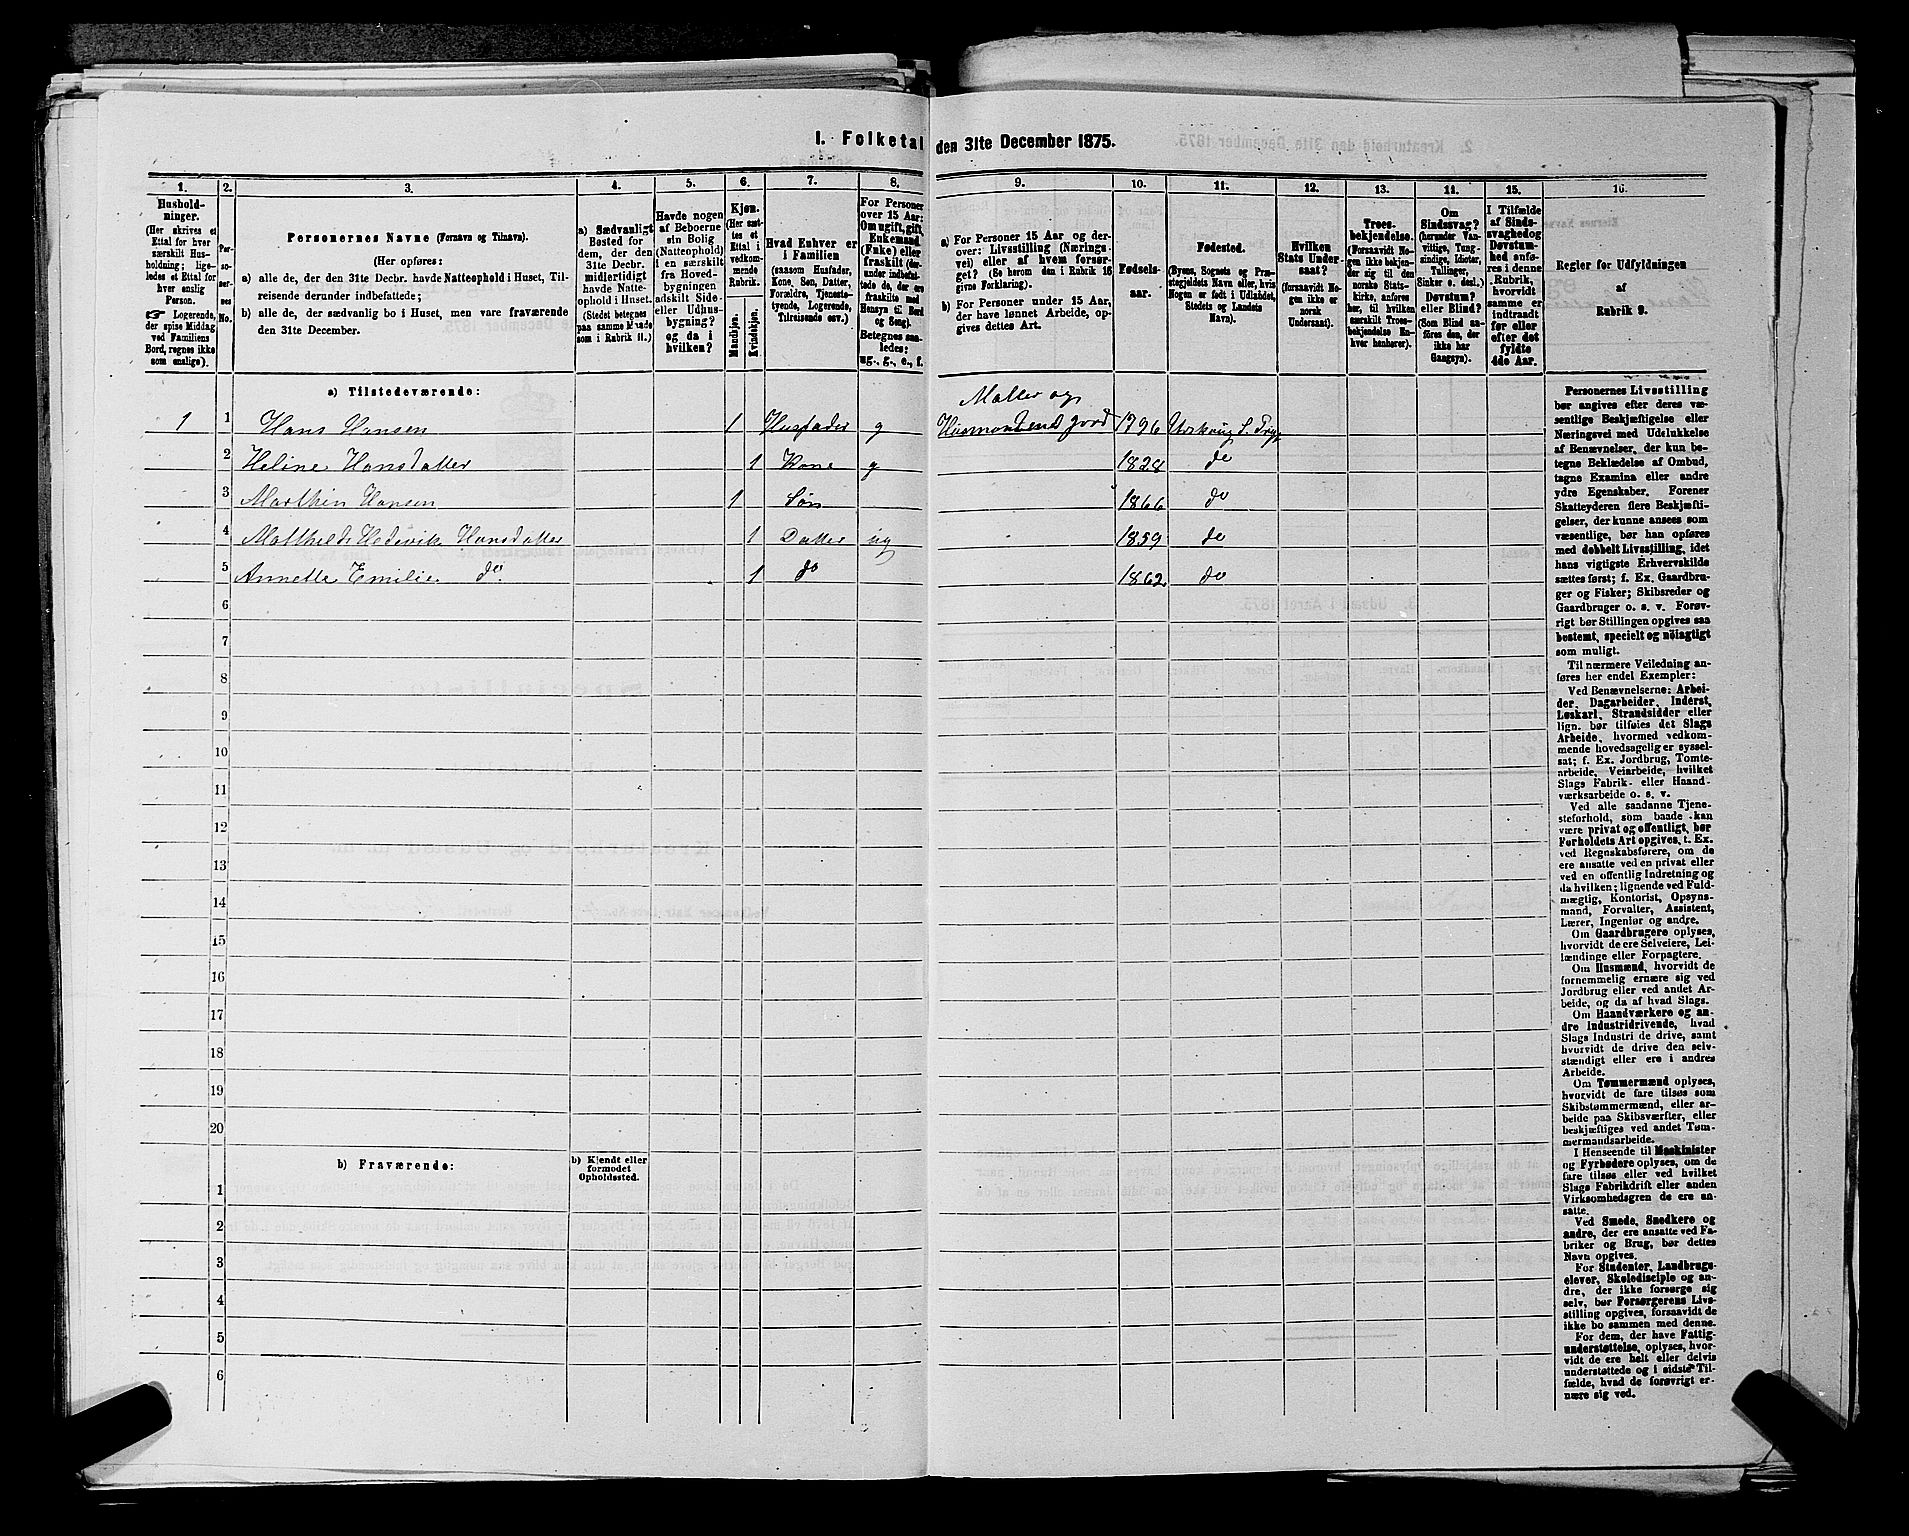 I. Folketal den 31te December 1875.
1. 2. 3. 4. 5. 6. 7. 8. 9. 10. 11. 12. 13. 14. 15. 16.
Hushold-
ninger.
(Her skrives et
Ettal for hver
særskilt Hus-
holdning; lige-
ledes et Ettal for
hver enslig
Person.
☛ Logerende,
der spise Middag
ved Familiens
Bord, regnes ikke
som enslige).
Per-
so-
ner-
nes
No.
Personernes Navne (Fornavn og Tilnavn).
(Her opføres:
a) alle de, der den 31te Decbr. havde Natteophold i Huset, Til-
reisende derunder indbefattede;
b) alle de, der sædvanlig bo i Huset, men vare fraværende
den 31te December.
a) Sædvanligt
Bosted for
dem, der den
31te Decbr.
midlertidigt
havde Natte-
ophold i Huset.
(Stedet betegnes
paa samme Maade
som i Rubrik 11.)
Havde nogen
af Beboerne
sin Bolig
(Natteophold)
i en særskilt
fra Hoved-
bygningen
adskilt Side-
eller Udhus-
bygning?
og da i
hvilken?
Kjøn.
(Her sæt-
tes et
Ettal i
vedkom-
mende
Rubrik.
Mandkjøn.
Kvindekjøn.
Hvad Enhver er
i Familien
(saasom Husfader,
Kone, Søn, Datter,
Forældre, Tjeneste-
tyende, Logerende,
Tilreisende osv.)
For Personer
over 15 Aar:
Om ugift, gift,
Enkemand
(Enke) eller
fraskilt (der-
under indbefat-
tede de, der ere
fraskilte med
Hensyn til Bord
og Seng).
Betegnes saa-
ledes:
ug., g., e., f.
a) For Personer 15 Aar og der-
over: Livsstilling (Nærings-
vei) eller af hvem forsør-
get? (Se herom den i Rubrik 16
givne Forklaring).
b) For Personer under 15 Aar,
der have lønnet Arbeide, op-
gives dettes Art.
Fødsels-
aar.
Fødested.
(Byens, Sognets og Præ-
stegjeldets Navn eller, hvis
Nogen er født i Udlandet,
Stedets og Landets
Navn).
Hvilken
Stats Under-
saat?
(forsaavidt No-
gen ikke er
norsk
Undersaat).
Troes-
bekjendelse.
(Forsaavidt No-
gen ikke bekjen-
der sig til den
norske Stats-
kirke, anføres
her, til hvilken
særskilt Troes-
bekjendelse En-
hver henhører).
Om
Sindssvag?
(herunder Van-
vittige, Tung-
sindige, Idioter,
Tullinger,
Sinker o. desl.)
Døvstum?
eller Blind?
(Som Blind an-
føres den, der
ikke har
Gangsyn).
I Tilfælde
af Sinds-
svaghed og
Døvstum-
hed anfø-
res i denne
Rubrik,
hvorvidt
samme er
indtraadt
før eller
efter det
fyldte
4de Aar.
Regler for Udfyldningen
af
Rubrik 9.
a) Tilstedeværende:
Møller og
1 1 Hans Hansen 1 Husfader g Husmand med Jord 1796 Urskoug
2 Heline Hansdatter 1 Kone g 1828 do
3 Marthin Hansen 1 Søn 1866 do
4 Mathilde Hedevik Hansdatter 1 Datter ug 1859 do
5 Annette Emilie do. 1 do 1862 do
6
7
8
9
10
11
12
13
14
15
16
17
18
19
20
b) Fraværende:
b) Kjendt eller
formodet
Opholdssted.
1
2
3
4
5
6
Personernes Livsstilling
bør angives efter deres væ-
sentlige Beskjæftigelse eller
Næringsvei med Udelukkelse
af Benævnelser, der kun be-
tegne Beklædelse af Ombud,
tagne Examina eller andre
ydre Egenskaber. Forener
Skatteyderen flere Beskjæfti-
gelser, der kunne ansees som
væsentlige, bør han opføres
med dobbelt Livsstilling, idet
hans vigtigste Erhvervskilde
sættes først; f. Ex. Gaardbru-
ger og Fisker; Skibsreder og
Gaardbruger o. s. v. Forøv-
rigt bør Stillingen opgives saa
bestemt, specielt og nøiagtigt
som muligt.
Til nærmere Veiledning an-
føres her endel Exempler:
Ved Benævnelserne: Arbei-
der, Dagarbeider, Inderst,
Løskarl, Strandsidder eller
lign. bør tilføies det Slags
Arbeide, hvormed vedkom-
mende hovedsagelig er syssel-
sat; f. Ex. Jordbrug, Tomte-
arbeide, Veiarbeide, hvilket
Slags Fabrik- eller Haand-
værksarbeide o. s. v.
Ved alle saadanne Tjene-
steforhold, som baade kan
være privat og offentligt, bør
Forholdets Art opgives, t. Ex.
ved Regnskabsførere, om de
ere ansatte ved en privat eller
ved en offentlig Indretning og
da hvilken; lignende ved Fuld-
mægtig, Kontorist, Opsyns-
mand, Forvalter, Assistent,
Lærer, Ingeniør og andre.
Om Gaardbrugere oplyses,
hvorvidt de ere Selveiere, Lei-
lændinge eller Forpagtere.
Om Husmænd, hvorvidt de
fornemmelig ernære sig ved
Jordbrug eller ved andet Ar-
beide, og da af hvad Slags.
Om Haandværkere og an-
dre Industridrivende, hvad
Slags Industri de drive, samt
hvorvidt de drive den selv-
stændigt eller ere i andres
Arbeide.
Om Tømmermænd oplyses,
hvorvidt de fare tilsøs som
Skibstømmermænd, eller ar-
beide paa Skibsværfter, eller
beskjæftiges ved andet Tøm-
mermandsarbeide.
I Henseende til Maskinister
og Fyrbødere oplyses, om de
fare tilsøs eller ved hvilket
Slags Fabrikdrift eller anden
Virksomhedsgren de ere an-
satte.
Ved Smede, Snedkere og
andre, der ere ansatte ved Fa-
briker og Brug, bør dettes
Navn opgives.
For Studenter, Landbrugs-
elever, Skoledisciple og an-
dre, der ikke forsørge sig
selv, bør Forsørgerens Livs-
stilling opgives, forsaavidt de
ikke bo sammen med denne.
For dem, der have Fattig-
understøttelse, oplyses, hvor-
vidt de ere helt eller delvis
understøttede og i sidste Til-
fælde, hvad de forøvrigt er-
nære sig ved.